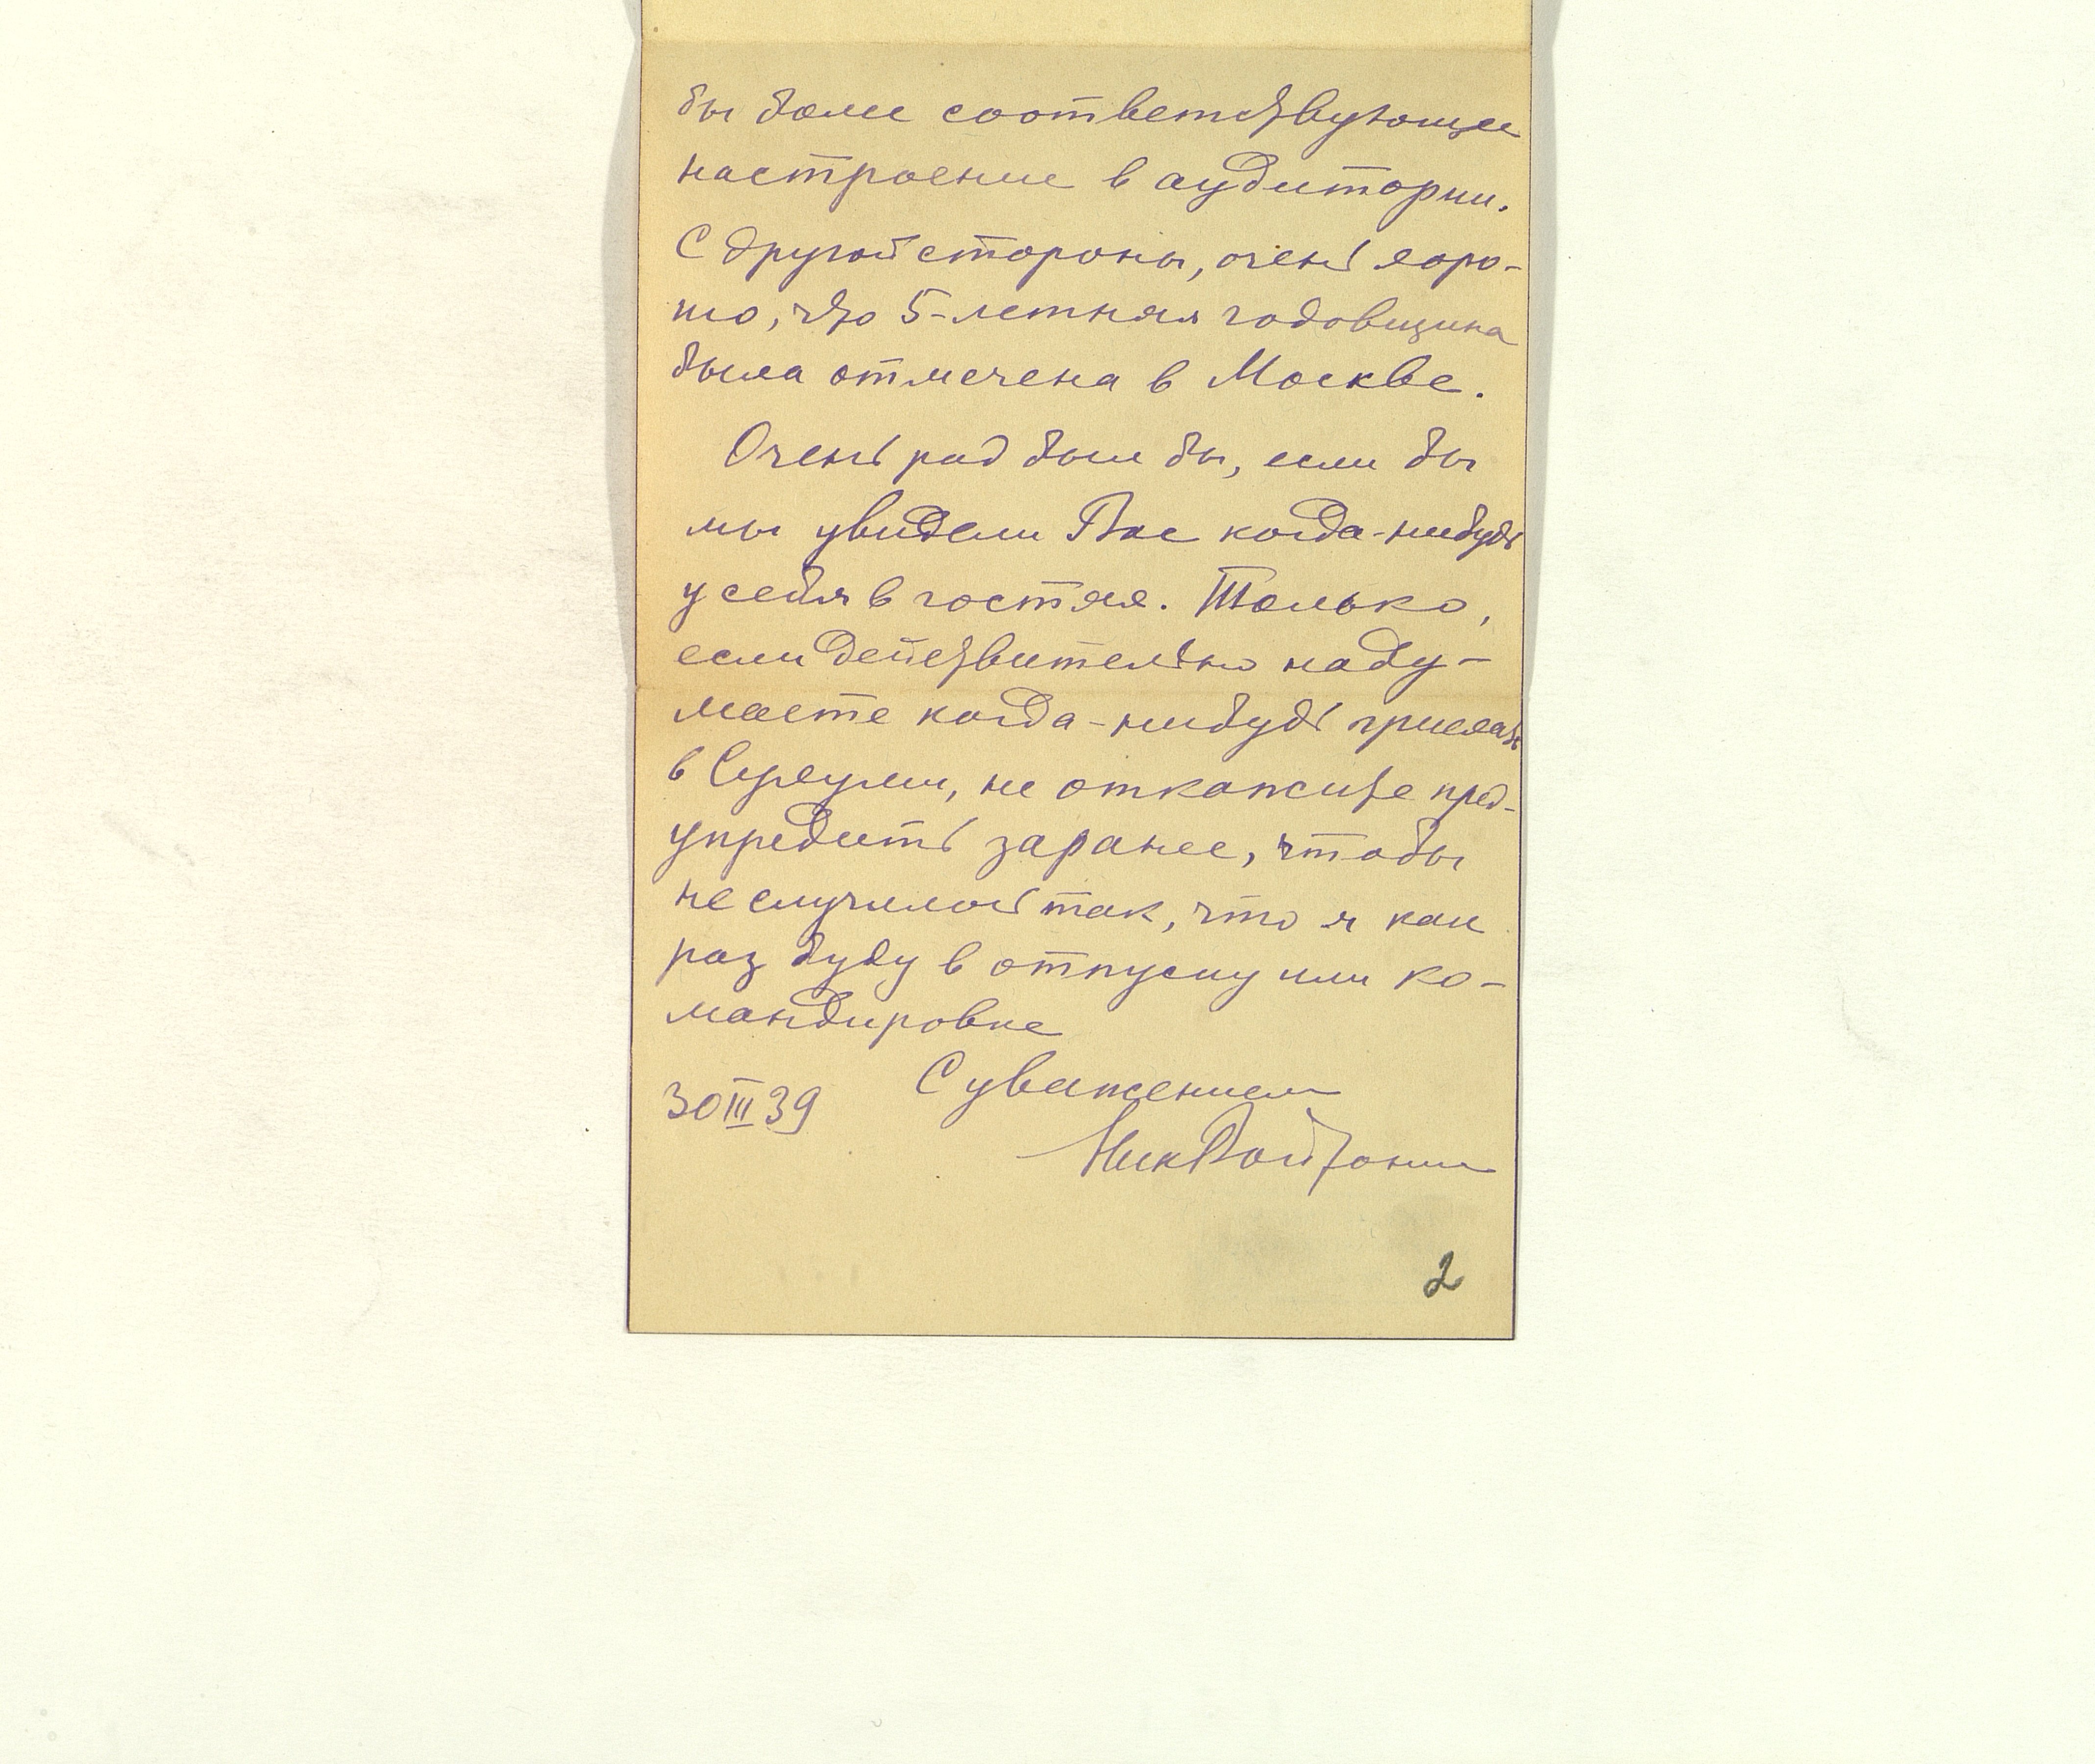 бы более соответствующее
настроение в аудитории.
С другой стороны, очень хоро-
шо, что 5-летняя годовщина
была отмечена в Москве.
Очень рад был бы, если бы
мы увидели Вас когда-нибудь
у себя в гостях. Только,
если действительно наду-
маете когда-нибудь приехать
в Сухуми, не откажите пред-
упредить заранее, чтобы
не случилось так, что я как
раз буду в отпуску или ко-
мандировке
С уважением
30 III 39
Ник Войтонис
2